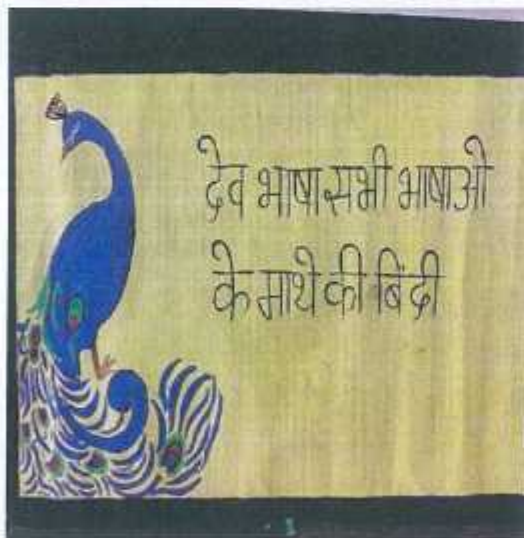 देव भाषा सभी भाषाओ
के माथे की बिंदी